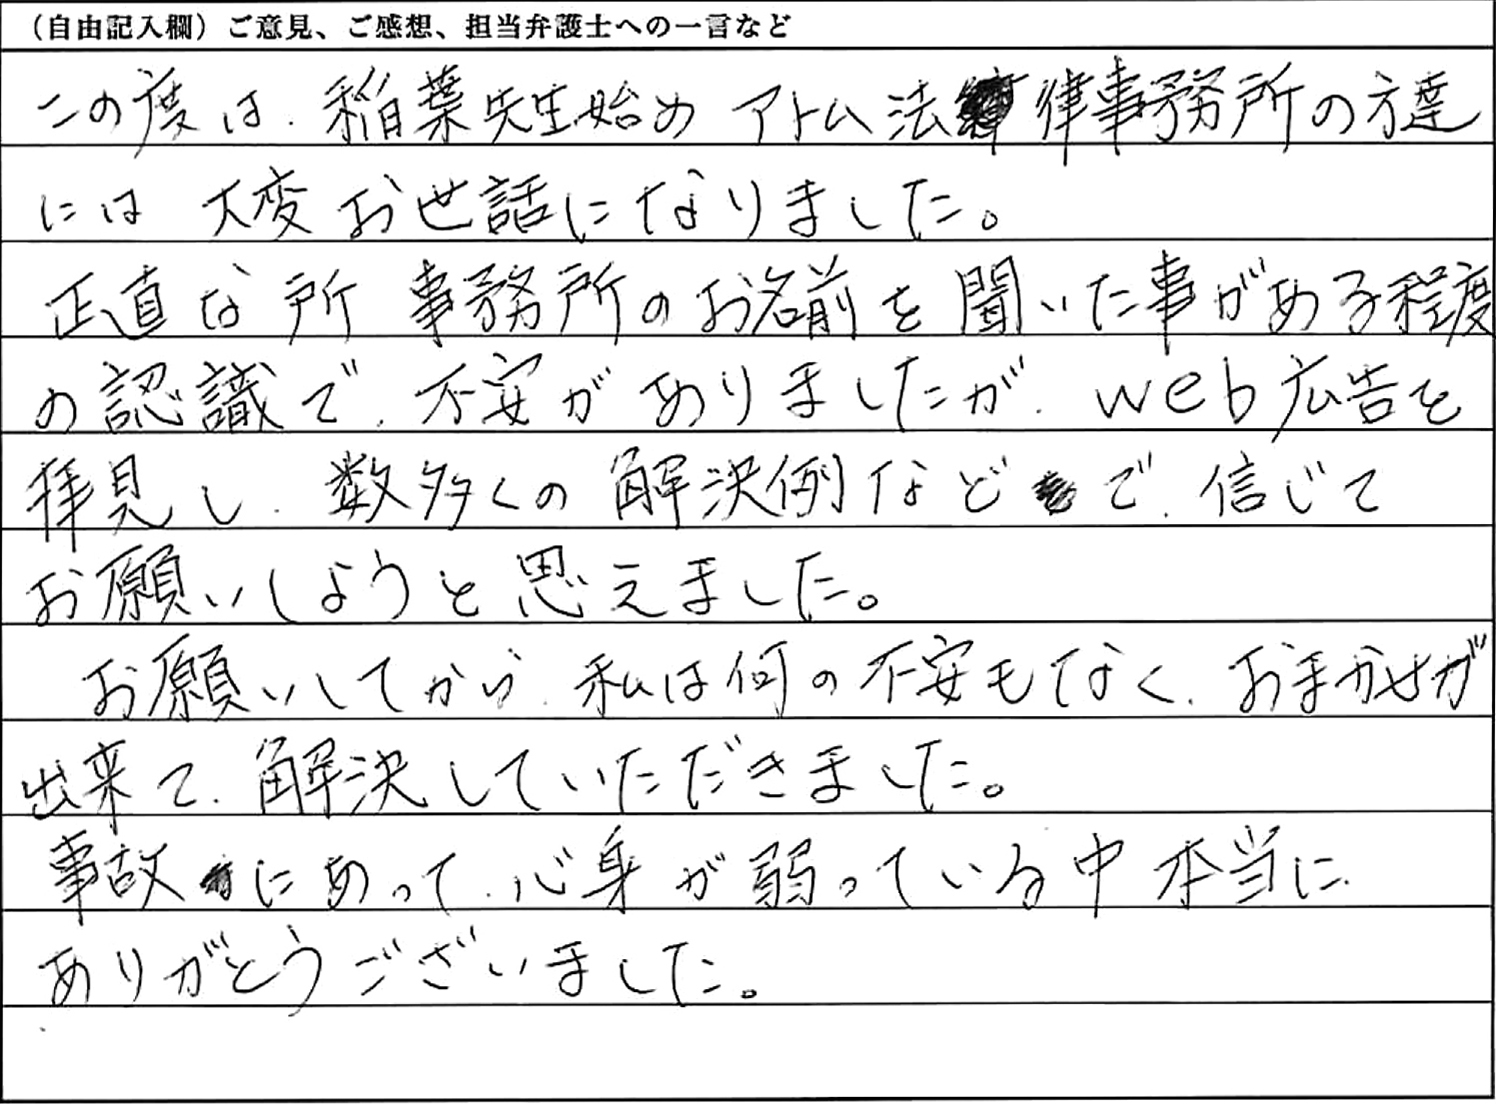 （自由記入欄）ご意見、ご感想、担当弁護士への一言など
この度は、稲葉先生始め アトム法律事務所の方達
には 大変お世話になりました。
正直な所 事務所のお名前を聞いた事がある程度
の認識で、不安がありましたが、web広告を
拝見し、数多くの解決例などで、信じて
お願いしようと思えました。
お願いしてから、私は何の不安もなく、おまかせが
出来て、解決していただきました。
事故にあって、心身が弱っている中 本当に
ありがとうございました。